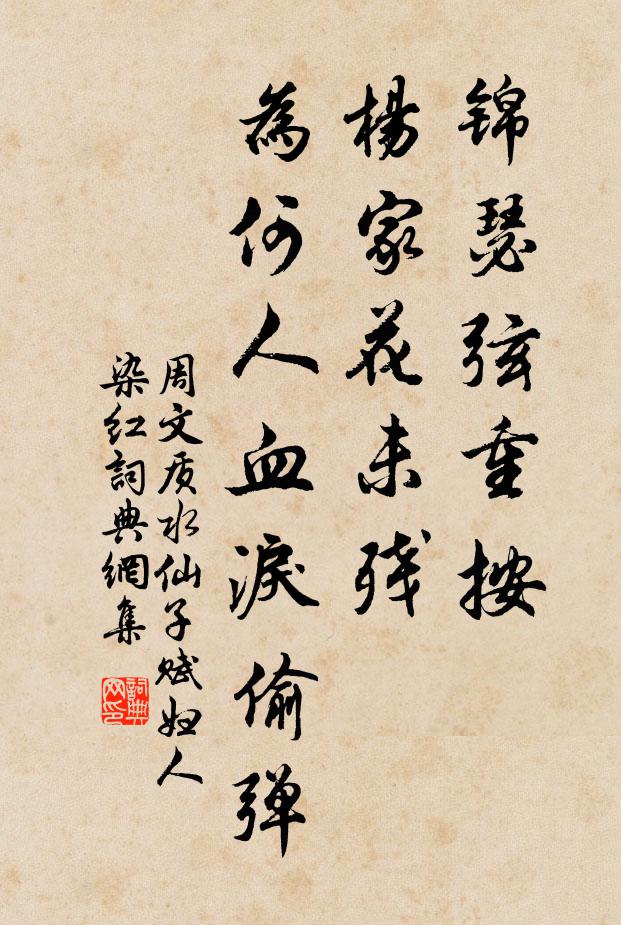 锦瑟弦重按
楊家花未残
為何人血淚偷弹
周文质水仙子赋妇人
染红詞典網集
詞典網印